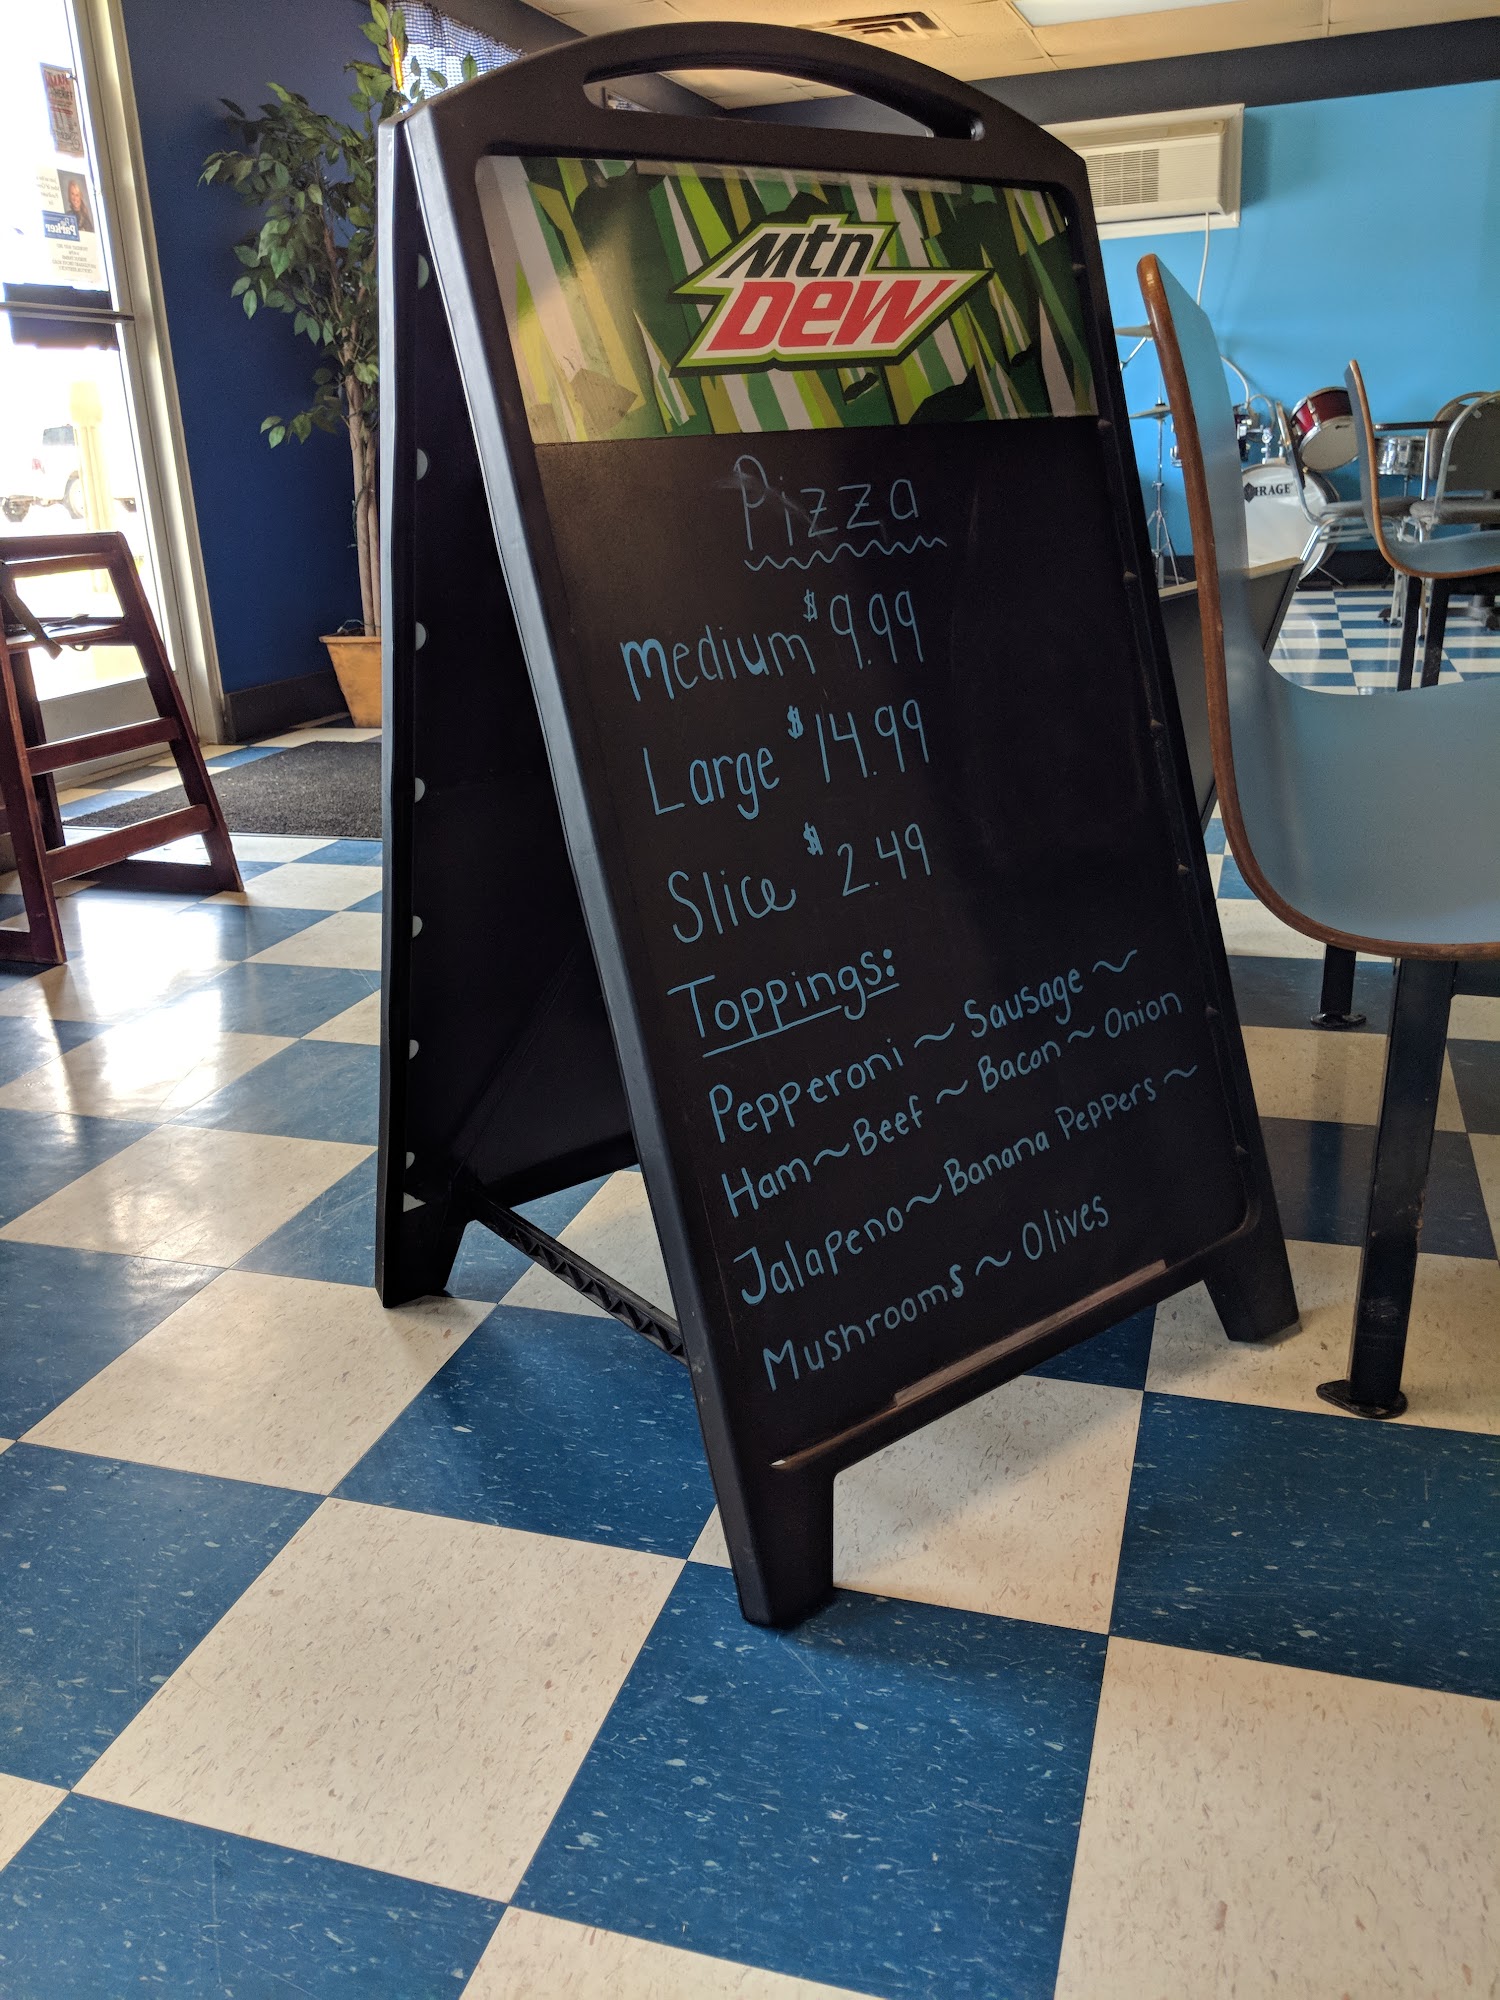 Mtn
Dew
Pizza
Medium $9.99
Large $14.99
Slice $2.49
Toppings:
Pepperoni ~ Sausage ~
Ham ~ Beef ~ Bacon ~ Onion
Jalapeno ~ Banana Peppers ~
Mushrooms ~ Olives
Parker